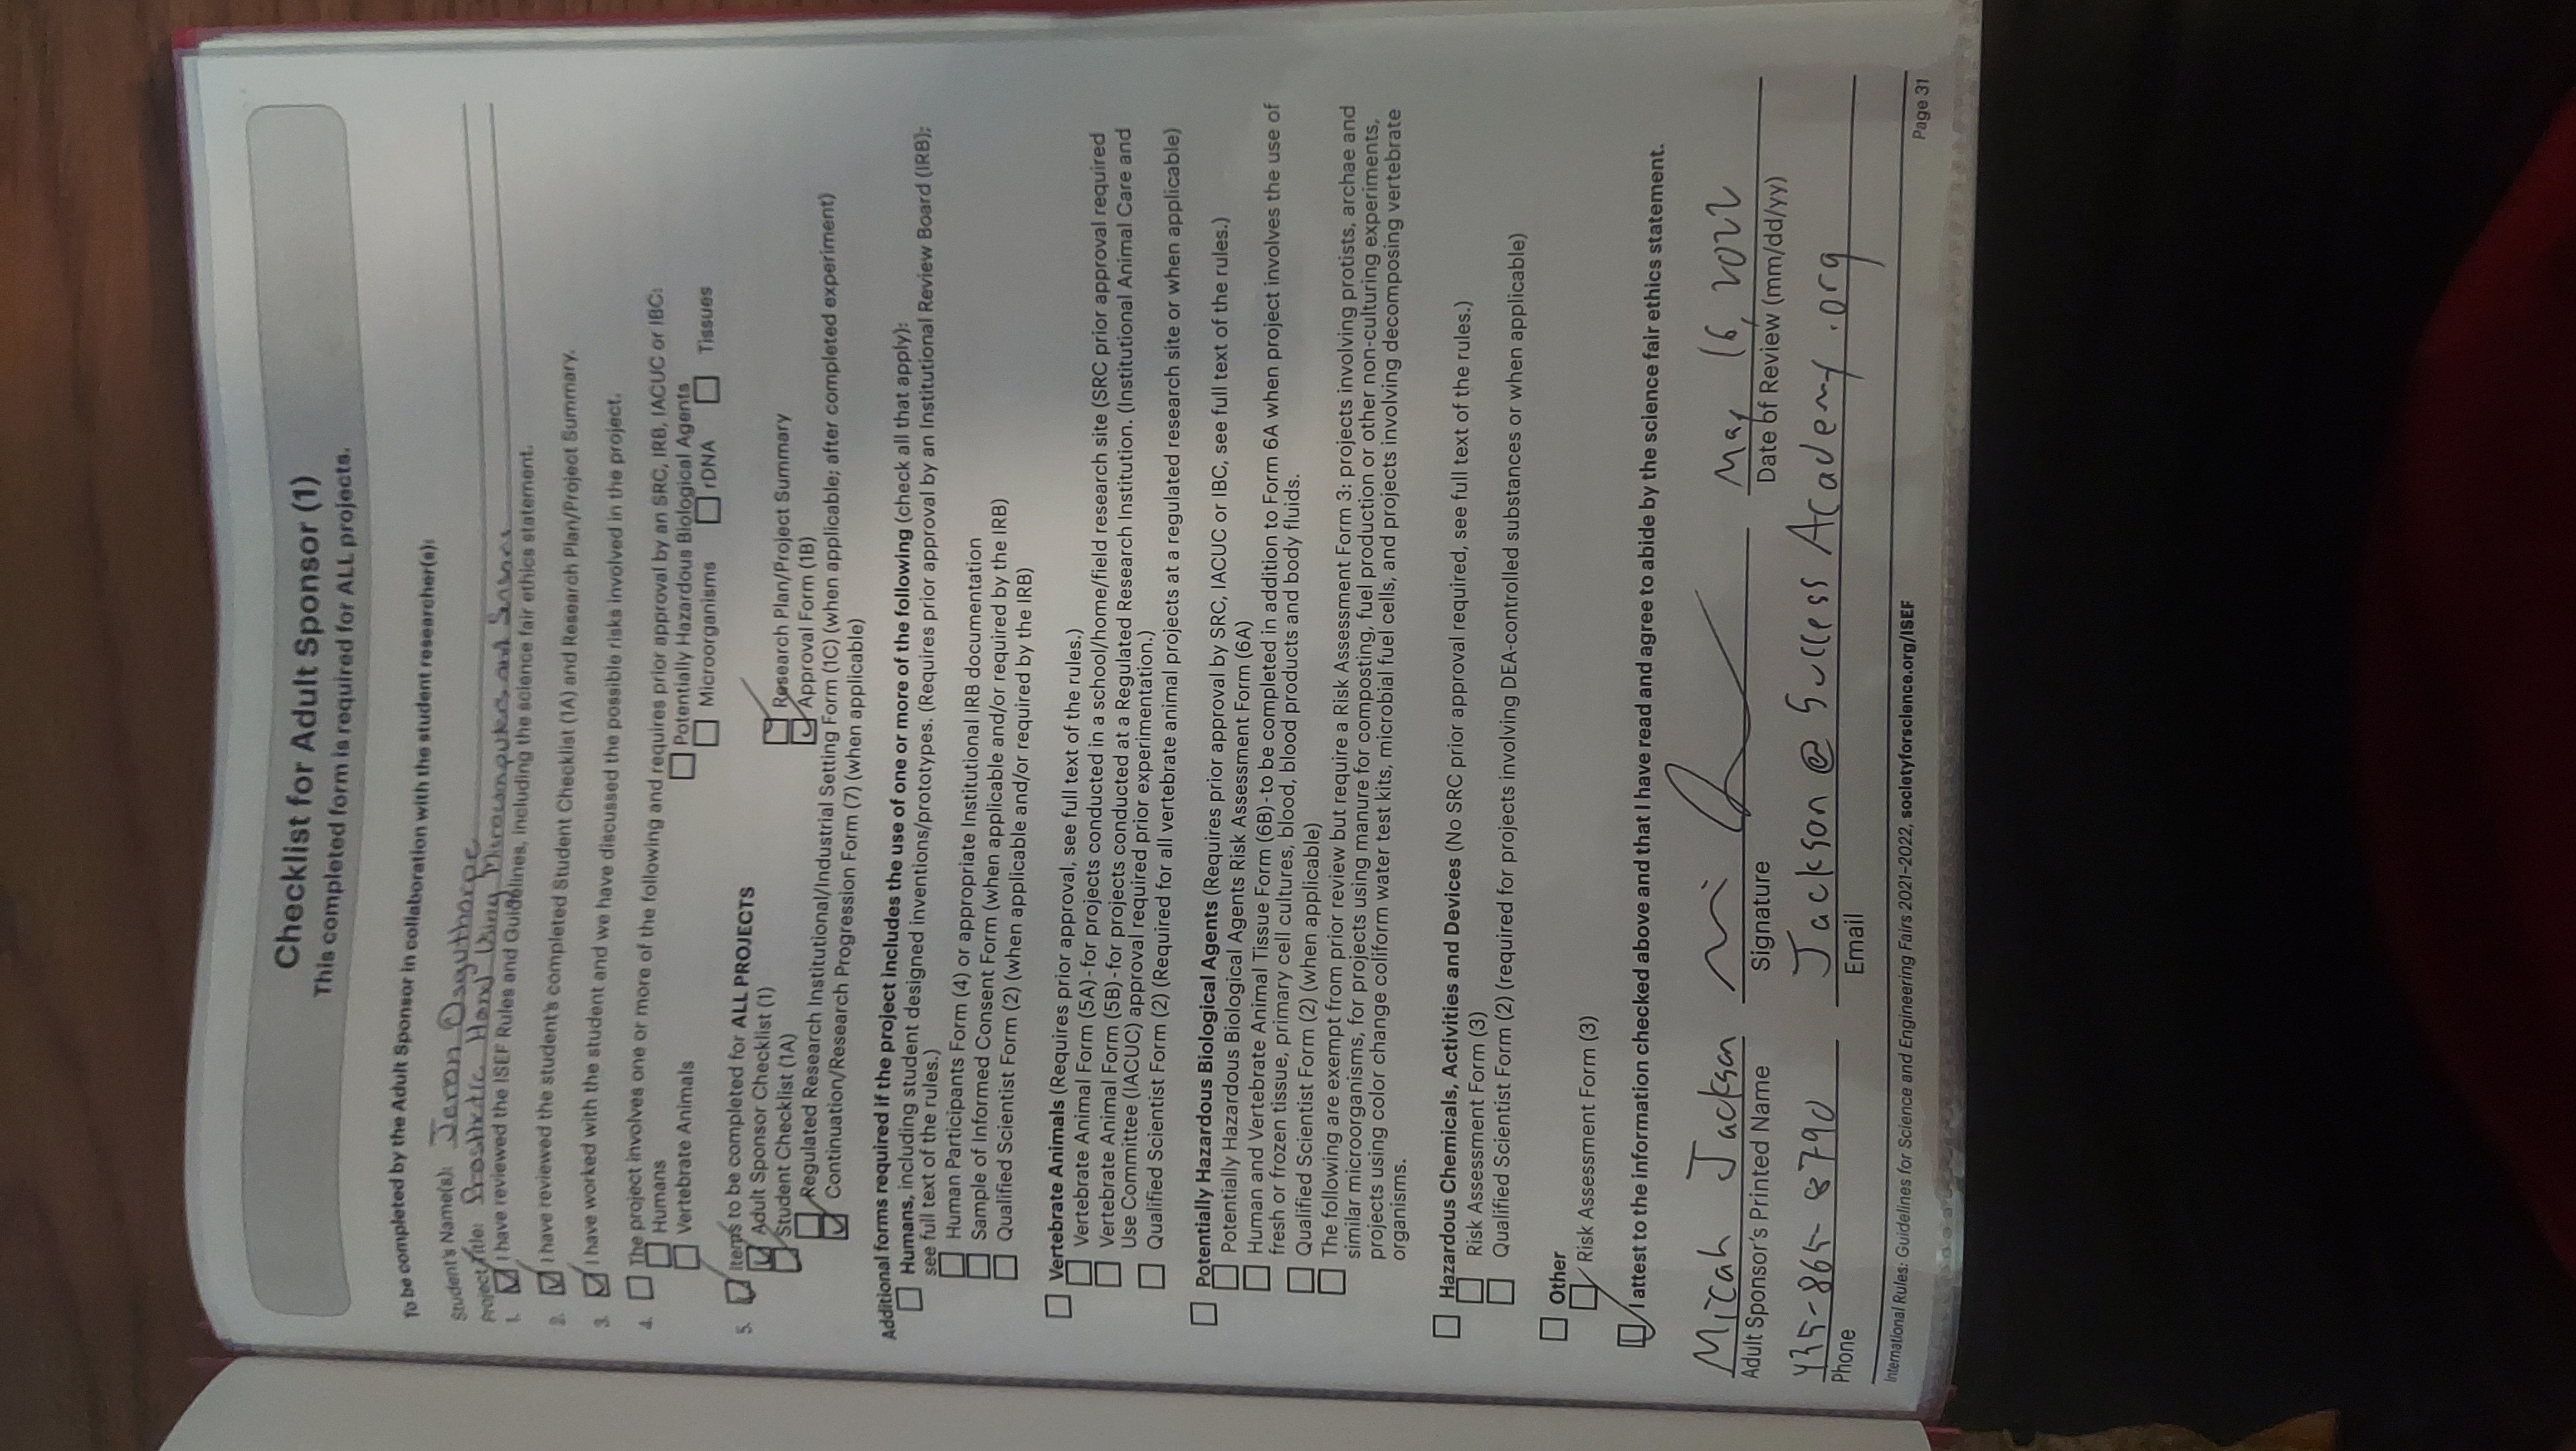 Checklist for Adult Sponsor (1)
This completed form is required for ALL projects.
To be completed by the Adult Sponsor in collaboration with the student researcher(s):
Student's Name(s): Jeron Osguthorpe
Project Title: Prosthetic Hand Using Microcomputers and Sensors
1. I have reviewed the ISEF Rules and Guidelines, including the science fair ethics statement.
2. I have reviewed the student's completed Student Checklist (1A) and Research Plan/Project Summary.
3. I have worked with the student and we have discussed the possible risks involved in the project.
4. The project involves one or more of the following and requires prior approval by an SRC, IRB, IACUC or IBC:
Humans
Vertebrate Animals
Potentially Hazardous Biological Agents
Microorganisms rDNA Tissues
5. Items to be completed for ALL PROJECTS
Adult Sponsor Checklist (1)
Student Checklist (1A)
Research Plan/Project Summary
Approval Form (1B)
Regulated Research Institutional/Industrial Setting Form (1C) (when applicable; after completed experiment)
Continuation/Research Progression Form (7) (when applicable)
Additional forms required if the project includes the use of one or more of the following (check all that apply):
Humans, including student designed inventions/prototypes. (Requires prior approval by an Institutional Review Board (IRB);
see full text of the rules.)
Human Participants Form (4) or appropriate Institutional IRB documentation
Sample of Informed Consent Form (when applicable and/or required by the IRB)
Qualified Scientist Form (2) (when applicable and/or required by the IRB)
Vertebrate Animals (Requires prior approval, see full text of the rules.)
Vertebrate Animal Form (5A)-for projects conducted in a school/home/field research site (SRC prior approval required
Vertebrate Animal Form (5B)-for projects conducted at a Regulated Research Institution. (Institutional Animal Care and
Use Committee (IACUC) approval required prior experimentation.)
Qualified Scientist Form (2) (Required for all vertebrate animal projects at a regulated research site or when applicable)
Potentially Hazardous Biological Agents (Requires prior approval by SRC, IACUC or IBC, see full text of the rules.)
Potentially Hazardous Biological Agents Risk Assessment Form (6A)
Human and Vertebrate Animal Tissue Form (6B)-to be completed in addition to Form 6A when project involves the use of
fresh or frozen tissue, primary cell cultures, blood, blood products and body fluids.
Qualified Scientist Form (2) (when applicable)
The following are exempt from prior review but require a Risk Assessment Form 3: projects involving protists, archae and
similar microorganisms, for projects using manure for composting, fuel production or other non-culturing experiments,
projects using color change coliform water test kits, microbial fuel cells, and projects involving decomposing vertebrate
organisms.
Hazardous Chemicals, Activities and Devices (No SRC prior approval required, see full text of the rules.)
Risk Assessment Form (3)
Qualified Scientist Form (2) (required for projects involving DEA-controlled substances or when applicable)
Other
Risk Assessment Form (3)
I attest to the information checked above and that I have read and agree to abide by the science fair ethics statement.
Micah Jackson May 16, 2022
Adult Sponsor's Printed Name Signature Date of Review (mm/dd/yy)
435-865-8790 Jackson@SuccessAcademy.org
Phone Email
International Rules: Guidelines for Science and Engineering Fairs 2021-2022, societyforscience.org/ISEF Page 31